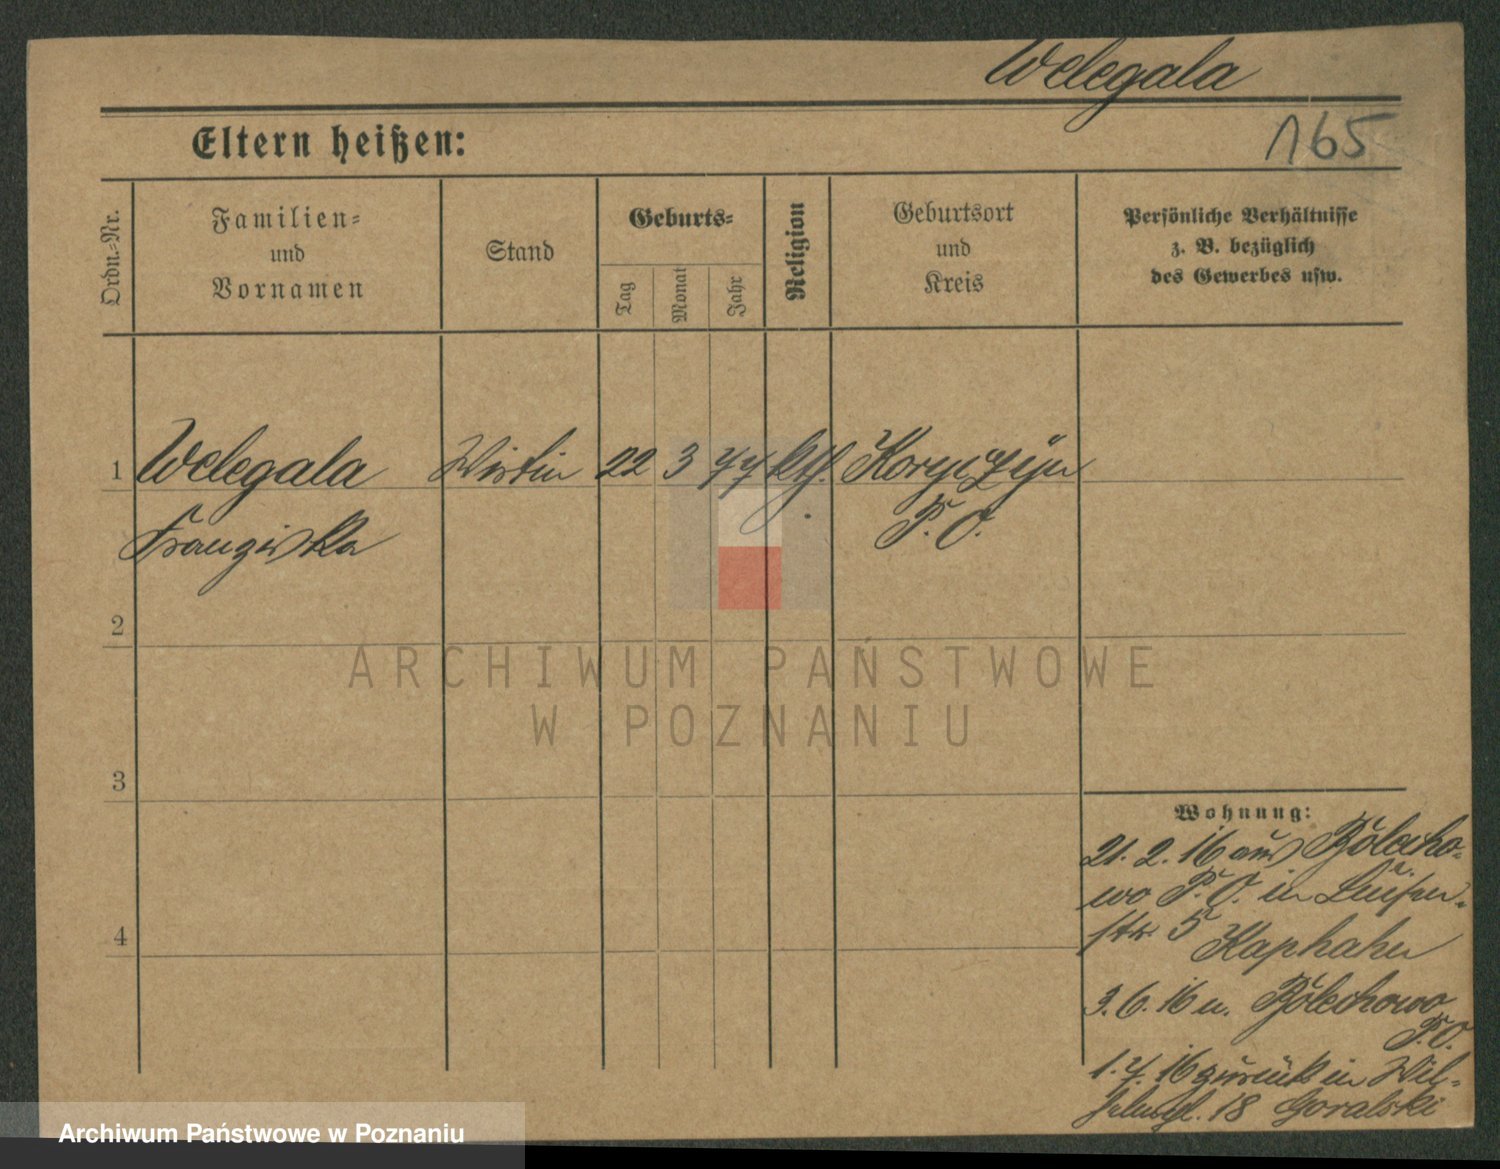 Welegala
165
Eltern heißen:
Ordn.-Nr.
Familien-
und
Vornamen
Stand
Geburts-
Tag
Monat
Jahr
Religion
Geburtsort
und
Kreis
Persönliche Verhältnisse
z. B. bezüglich
des Gewerbes usw.
1 Welegala Wirtin 22 3 77 kth.
Franziska P. O.
2
3
4
ARCHIWUM PAŃSTWOWE
W POZNANIU
Wohnung:
21. 2. 16 aus Bolecho-
wo P. O. in Luisen-
str. 5 Kaphahn
3. 6. 16 n. Bolechowo
P. O.
1. 7. 16 zurück in Wil-
18 Goralski
Archiwum Państwowe w Poznaniu